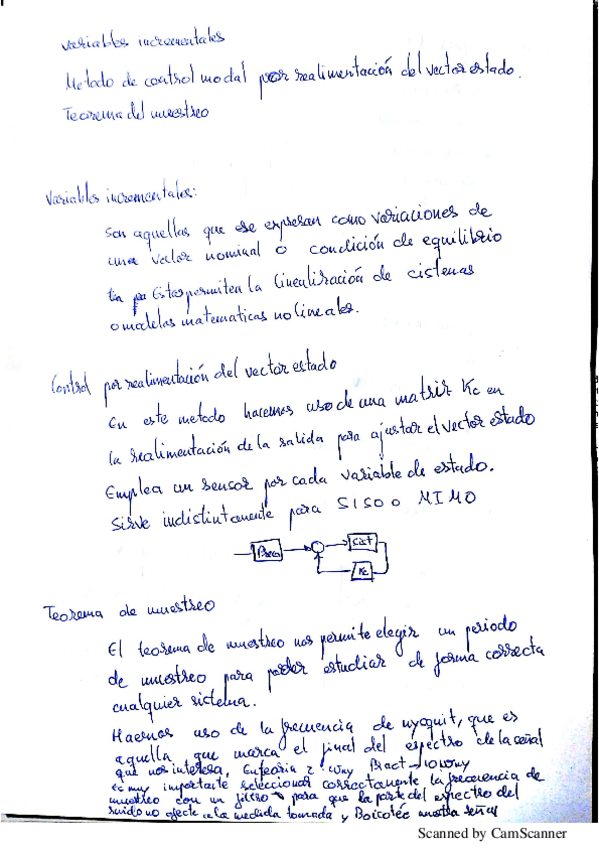 Variables incrementales
Metodo de control modal por realimentación del vector estado.
Teorema del muestreo
Variables incrementales:
Son aquellas que se expresan como variaciones de
una valor nominal o condición de equilibrio
Estas permiten la linealización de cistemas
o modelos matematicas no lineales.
Control por realimentación del vector estado
En este metodo hacemos uso de una matriz Kc en
la realimentación de la salida para ajustar el vector estado
Emplea un sensor por cada variable de estado.
Sirve indistintamente para SISO o MIMO
Prec
Sist
Kc
Teorema de muestreo
El teorema de muestreo nos permite elegir un periodo
de muestreo para poder estudiar de forma correcta
cualquier sistema.
Haemos uso de la frecuencia de nyquit, que es
aquella que marca el final del espectro de la señal
que nos interesa, En teoria 2·Wny Pract → 10Wny
es muy importante seleccionar correctamente la frecuencia de
muestreo con un filtro para que la parte del espectro del
ruido no afecte a la medida tomada y Boicotée nuestra señas
Scanned by CamScanner